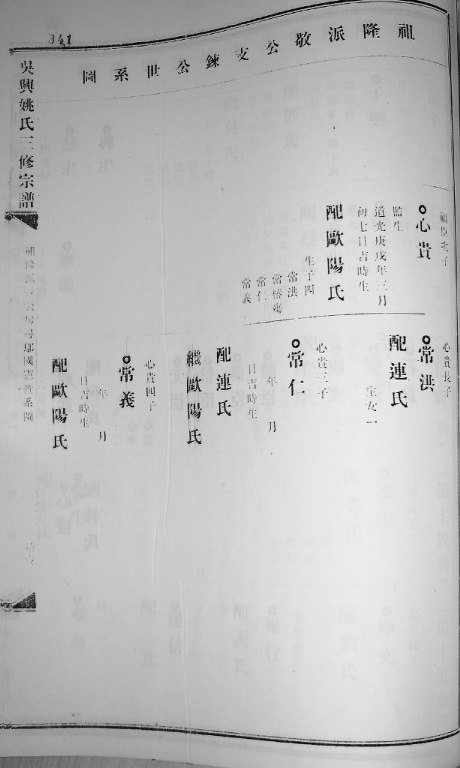 341
祖隆派敬公支鍊公世系圖
心貴
監生
道光庚戌年三月
初七日吉時生
配歐陽氏
生子四
常洪
常椿殤
常仁
常義
心貴長子
常洪
配連氏
生女一
心貴三子
常仁
年 月
日吉時生
配連氏
繼歐陽氏
心貴四子
常義
年 月
日吉時生
配歐陽氏
吳興姚氏三修宗譜